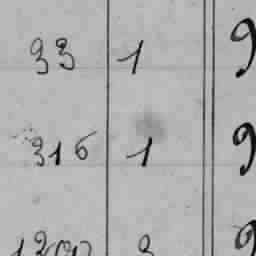 33 1 9
316 1 9
1300 3 9